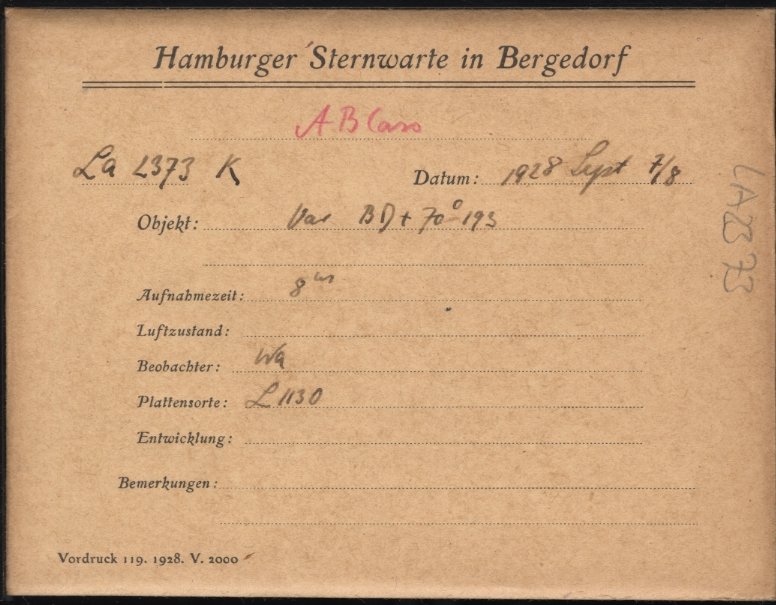 Hamburger Sternwarte in Bergedorf
AB Cass
La 2373 K Datum: 1928 Sept 7/8
Objekt: Var BD + 70° 193
Aufnahmezeit: 8
Luftzustand:
Beobachter: Wa
Plattensorte: L 1130
Entwicklung:
Bemerkungen:
Vordruck 119. 1928. V. 2000
LA2373